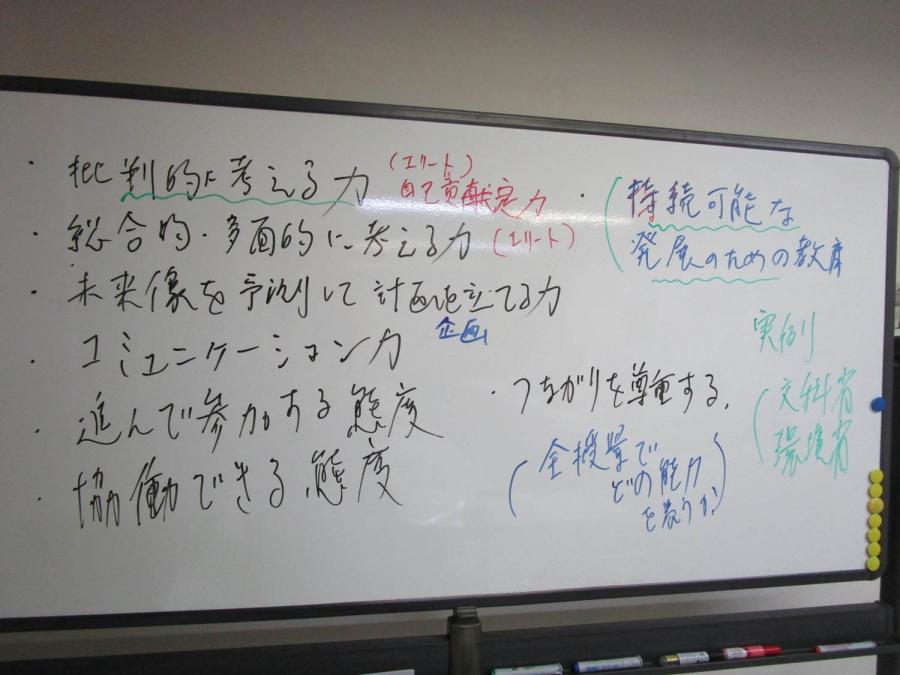 ・批判的に考える力 (エリート)
自己
定力
・総合的・多面的に考える力 (エリート)
・未来像を予測して計画を立てる力
・コミュニケーション力 企画
・進んで参加する態度
・協働できる態度
・つながりを尊重する,
(全授業で
どの能力
を養うか)
・(持続可能な
発展のための教育
実例
(文科省
環境省